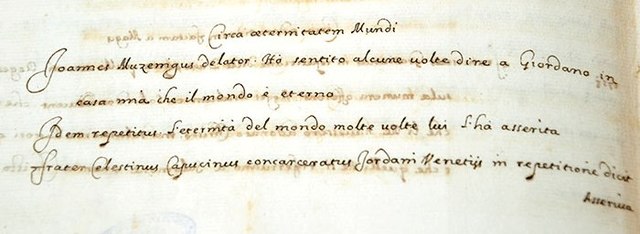 Circa æternitatem Mundi
Joannes Mozenigus delator. Hò sentito alcune volte dire a Giordano in
casa mia che il mondo è eterno
Idem repetitus l'eternità del mondo molte volte lui l'hà asserita
frater Celestinus Capucinus concarceratus Jordani Venetijs in repetitione dicit
Asseriva